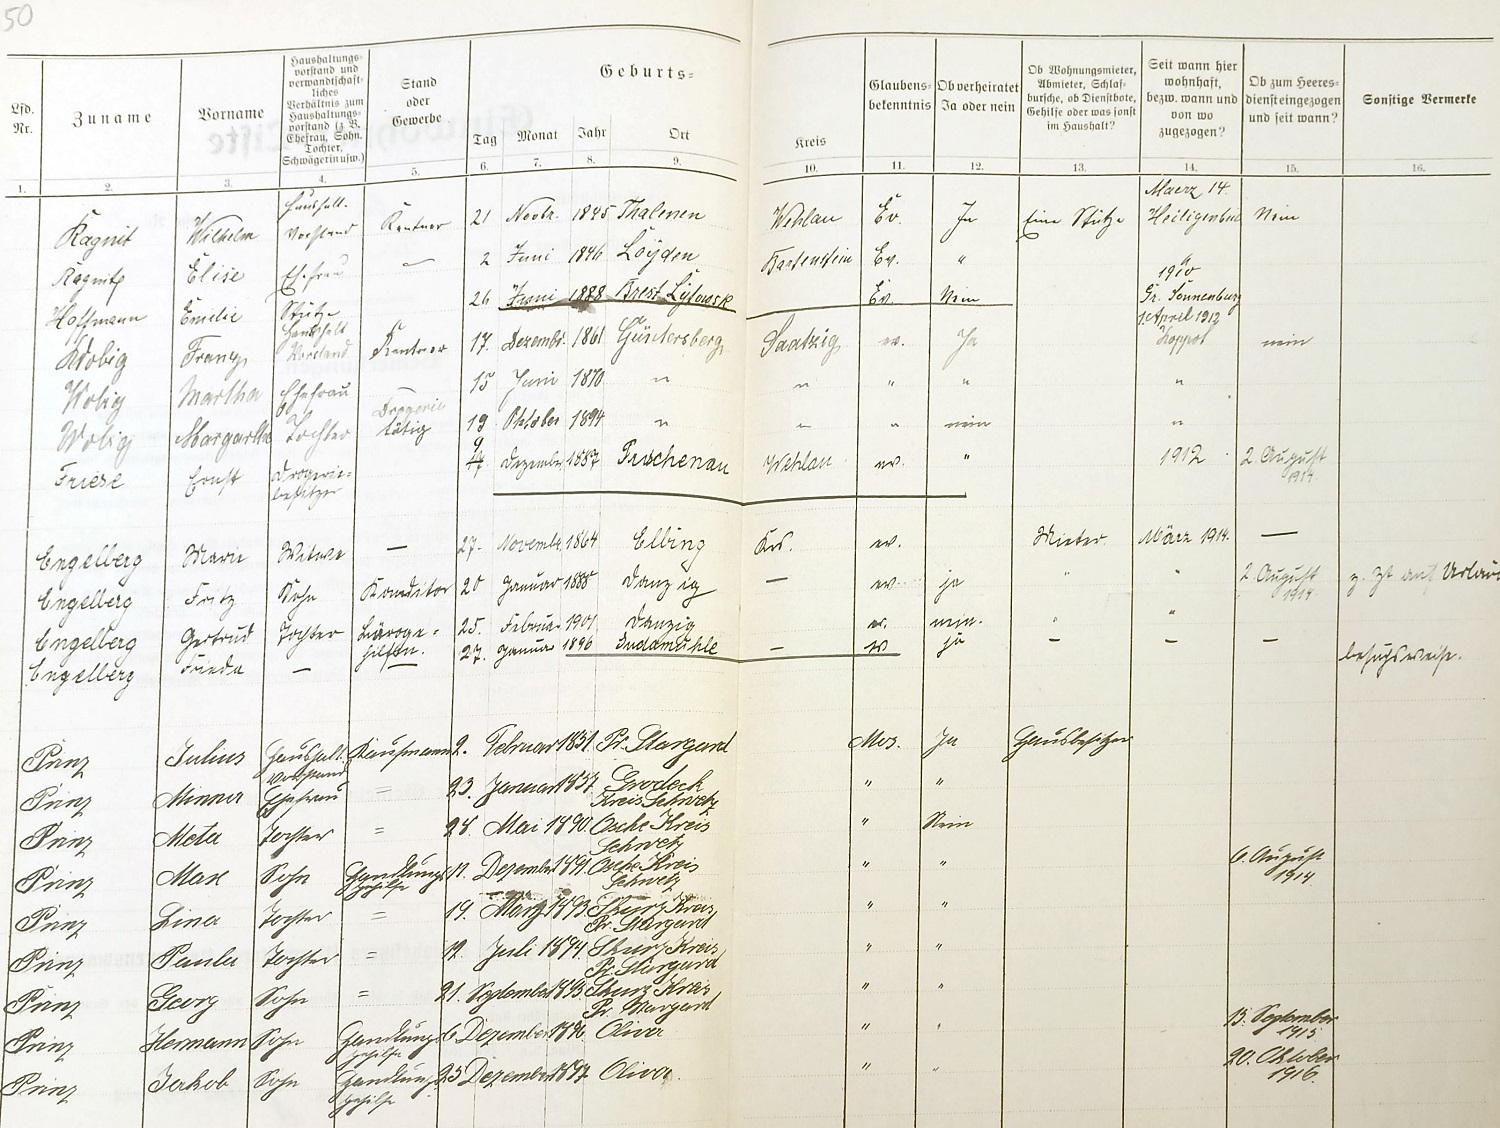 50
Lfd. Nr.
Zuname
Vorname
Haushaltungs-
vorstand und
verwandtschaft-
liches
Verhältnis zum
Haushaltungs-
vorstand (z. B.
Ehefrau, Sohn,
Tochter,
Schwägerin usw.)
Stand
oder
Gewerbe
Geburts=
Tag Monat Jahr Ort
Kreis
Glaubens-
bekenntnis
Ob verheiratet
Ja oder nein
Ob Wohnungsmieter,
Abmieter, Schlaf-
bursche, ob Dienstbote,
Gehilfe oder was sonst
im Haushalt?
Seit wann hier
wohnhaft,
bezw. wann und
von wo
zugezogen?
Ob zum Heeres-
dienst eingezogen
und seit wann?
Sonstige Vermerke
1. 2. 3. 4. 5. 6. 7. 8. 9. 10. 11. 12. 13. 14. 15. 16.
Haushalt. Maerz 14
Ragnit Wilhelm Vorstand Rentner 21 Novbr. 1845 Thalenen Wehlau Ev. Ja Eine Stütze Nein
Elise Ehefrau — 2 Juni 1846 Löyden Bartenstein Ev. "
1910
Hoffmann Emilie Stütze 26 Juni 1888 Brest Lytowsk Ev. Nein Gr. Sonnenburg
Haushalt 1 April 1912
Wobig Franz Vorstand Rentner 17. Dezembr. 1861 Güntersberg Saatzig ev. Ja Zoppot nein
Wobig Martha Ehefrau — 15 Juni 1870 " " " " "
Drogerie
Wobig Margarethe Tochter tätig 19 Oktober 1894 " " " nein "
Friese Ernst Drogerie- 9 Dezember 1887 Wehlau ev. " 1912 2. August
besitzer 1914
Engelberg Marie Witwe — 27. Novembr. 1864 Elbing ev. Mieter März 1914. —
Engelberg Fritz Sohn Konditor 20 Januar 1888 Danzig — ev. ja " " 2 August z. Zt auf Urlaub
1914.
Engelberg Gertrud Tochter Büroge- 25. Februar 1901 Danzig ev. nein. " "
hilfin.
Engelberg Frieda — — 27. Januar 1896 — ev ja — — — besuchsweise.
Prinz Julius Haushalt. Kaufmann 2. Februar 1851. Pr. Stargard Mos. Ja Hausbesitzer
vorstand
Prinz Minna Ehefrau = 23. Januar 1857. Grodeck " "
Kreis Schwetz
Prinz Meta Tochter = 28. Mai 1890. Osche Kreis " Nein
Schwetz
Prinz Max Sohn Handlungs- 11. Dezember 1891. Osche Kreis " " 6. August
gehilfe Schwetz 1914.
Prinz Lina Tochter = 19. März 1893. Skurz Kreis " "
Pr. Stargard
Prinz Paula Tochter = 12. Juli 1894. Skurz Kreis " "
Pr. Stargard
Prinz Georg Sohn = 21. September 1895. Skurz Kreis " "
Pr. Stargard
Prinz Hermann Sohn Handlungs- 6 Dezember 1896. Oliva " " 15. September
gehilfe 1915
Prinz Jakob Sohn Handlungs- 25 Dezember 1897 Oliva. " " 20. Oktober
gehilfe 1916.